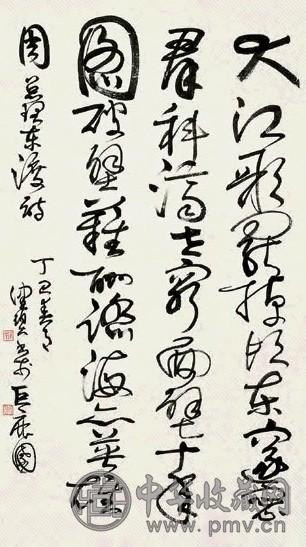 大江歌罢掉头东邃密
群科济世穷面壁十年
图破壁难酬蹈海亦英雄
周总理东渡诗
丁丑春月
中华收藏网
www.pmv.cn